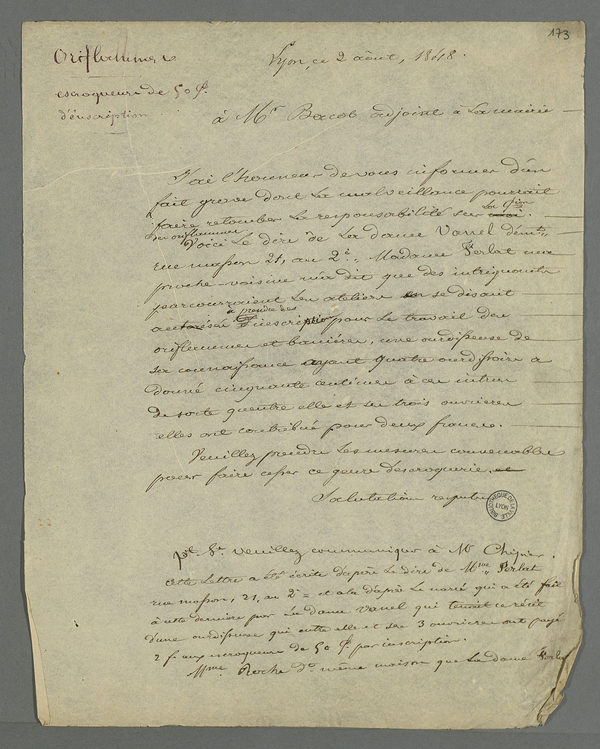 173
Oriflammes
escroquerie de 50 c.
d'inscription
Lyon, ce 2 août, 1848.
à Mr Bacot adjoint à la mairie
J'ai l'honneur de vous informer d'un
fait grave dont la malveillance pourrait
faire retomber la responsabilité sur les
des oriflammes
Voici le dire de la dame Vanel
rue masson 21, au 2e, Madame Perlat ma
proche voisine m'a dit que des intriguants
parcourraient les ateliers se disant
à prendre des
autorisé inscription pour le travail des
oriflammes et banières, une ourdisseuse de
sa connaissance ayant quatre ourdissoirs a
donné cinquante centimes à ces
de sorte quentre elle et ses trois ouvrières
elles ont contribué pour deux francs.
Veuillez prendre les mesures convenables
pour faire cesser ce genre descroquerie.
Salutation
BIBLIOTHEQUE DE LA VILLE LYON
P. S. veuillez communiquer à Mr
Cette lettre a été écrite d'après le dire de Mme Perlat
rue masson, 21, au 2e et a la d'après le narré qui a été fait
à cette dernière par la dame Vanel qui tenait ce récit
d'une ourdisseuse qui entre elle et ses 3 ouvrières ont payé
2 f. aux escroqueurs de 50 c. par inscription.
Mme Roche dt même maison que la dame